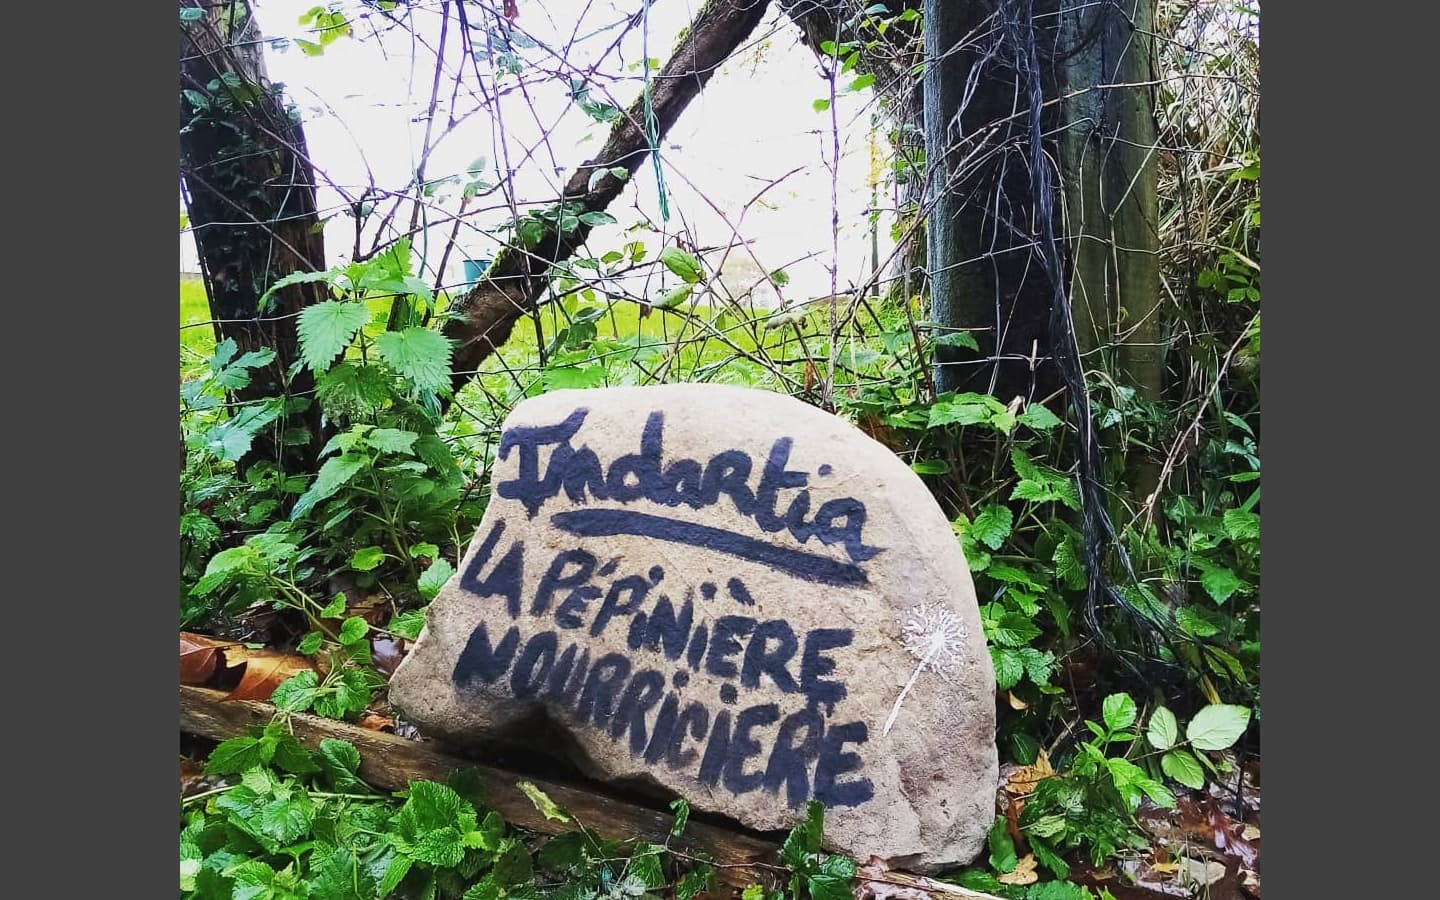 Indartia
LA PÉPINIÈRE
NOURRICIÈRE